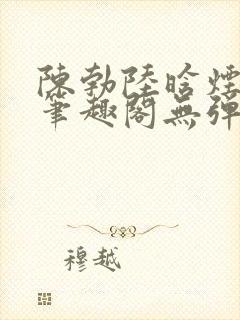 陳勃陸晗煙
筆趣閣無彈
穆越